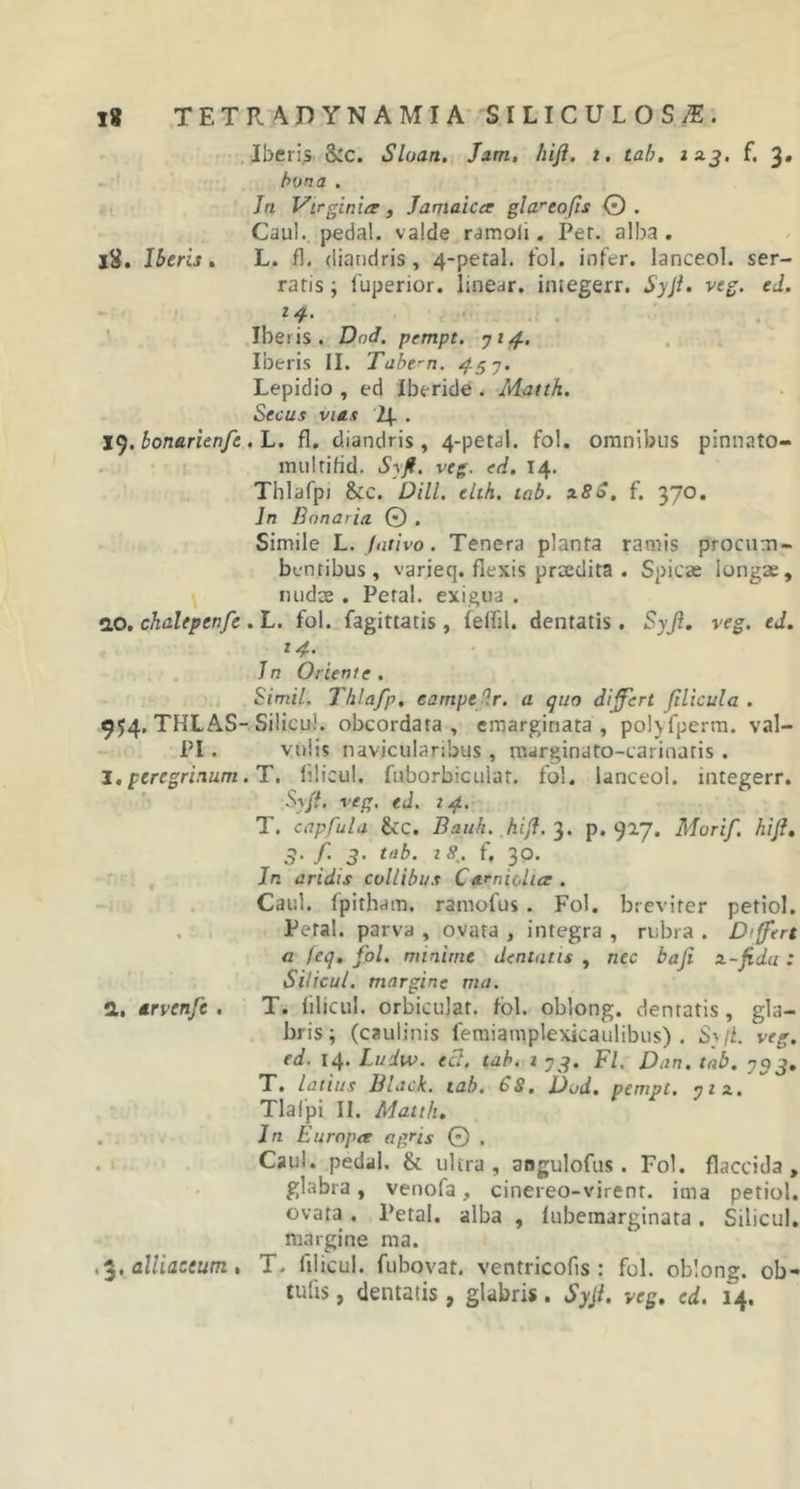 18 TETRADYNAMIA SILICULOSÆ.
Iberis &c. Sloan. Jam. hiſt. 1. tab. 123. f. 3.
bona .
In Virginiæ, Jamaicæ glareoſis ☉ .
Caul. pedal. valde ramoſi . Pet. alba .
18. Iberis . L. fl. diandris, 4-petal. fol. infer. lanceol. ser-
ratis ; ſuperior. linear. integerr. Syſt. veg. ed.
14.
Iberis . Dod. pempt. 714.
Iberis II. Tabern. 457.
Lepidio , ed Iberide . Matth.
Secus vias ♃ .
19. bonarienſe . L. fl. diandris , 4-petal. fol. omnibus pinnato-
multifid. Syſt. veg. ed. 14.
Thlaſpi &c. Dill. elth. tab. 286. f. 370.
In Bonaria ☉ .
Simile L. ſativo . Tenera planta ramis procum-
bentibus , varieq. flexis prædita . Spicæ longæ,
nudæ . Petal. exigua .
20. chalepenſe . L. fol. ſagittatis , ſeſſil. dentatis . Syſt. veg. ed.
14.
In Oriente .
Simil. Thlaſp. campeſtr. a quo differt ſilicula .
954. THLAS- Silicul. obcordata , emarginata , polyſperm. val-
PI . vulis navicularibus , marginato-carinatis .
1. peregrinum . T. ſilicul. ſuborbiculat. fol. lanceol. integerr.
Syſt. veg. ed. 14.
T. capſula &c. Bauh. hiſt. 3. p. 927. Moriſ. hiſt.
3. ſ. 3. tab. 18. f. 30.
In aridis collibus Carniolicæ .
Caul. ſpitham. ramoſus . Fol. breviter petiol.
Petal. parva , ovata , integra , rubra . Differt
a ſeq. fol. minime dentatis , nec baſi 2-fida :
Silicul. margine ma.
2. arvenſe . T. ſilicul. orbiculat. fol. oblong. dentatis , gla-
bris ; (caulinis ſemiamplexicaulibus) . Syſt. veg.
ed. 14. Ludw. ect. tab. 173. Fl. Dan. tab. 793.
T. latius Black. tab. 68. Dod. pempt. 712.
Tlaſpi II. Matth.
In Europæ agris ☉ .
Caul. pedal. & ultra , anguloſus . Fol. flaccida ,
glabra , venoſa , cinereo-virent. ima petiol.
ovata . Petal. alba , ſubemarginata . Silicul.
margine ma.
3. alliaceum . T. ſilicul. ſubovat. ventricoſis : fol. oblong. ob-
tuſis , dentatis , glabris . Syſt. veg. ed. 14.